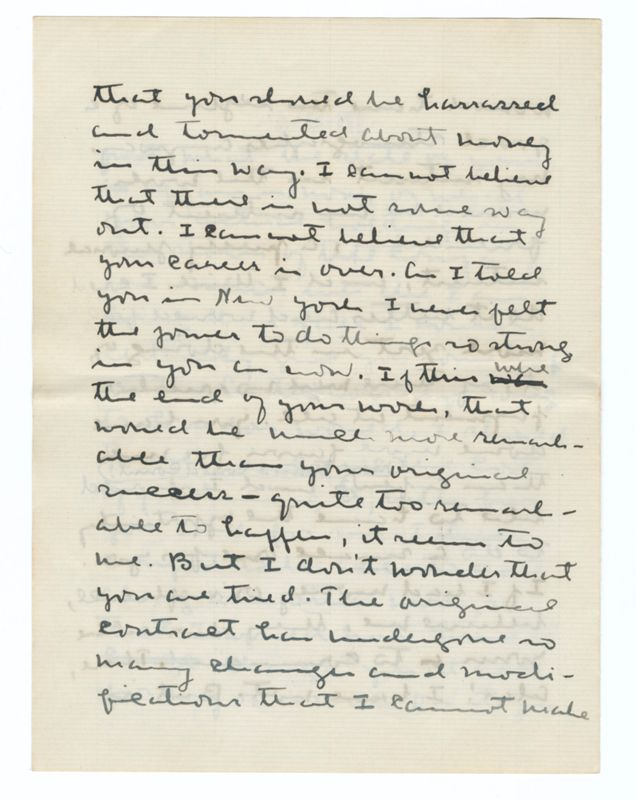 that you should be harrassed
and tormented about money
in this way. I cannot believe
that there is not some way
out. I cannot believe that
your career is over. As I told
you in New York I never felt
the power to do things so strong
in you as now. If this were
the end of your work, that
would be much more remark-
able than your original
success - quite too remark-
able to happen, it seems to
me. But I don't wonder that
you are tired. The original
contract has undergone so
many changes and modi-
fications that I cannot make